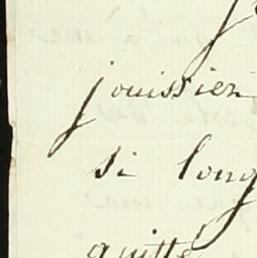 jouissien
si long
quitté